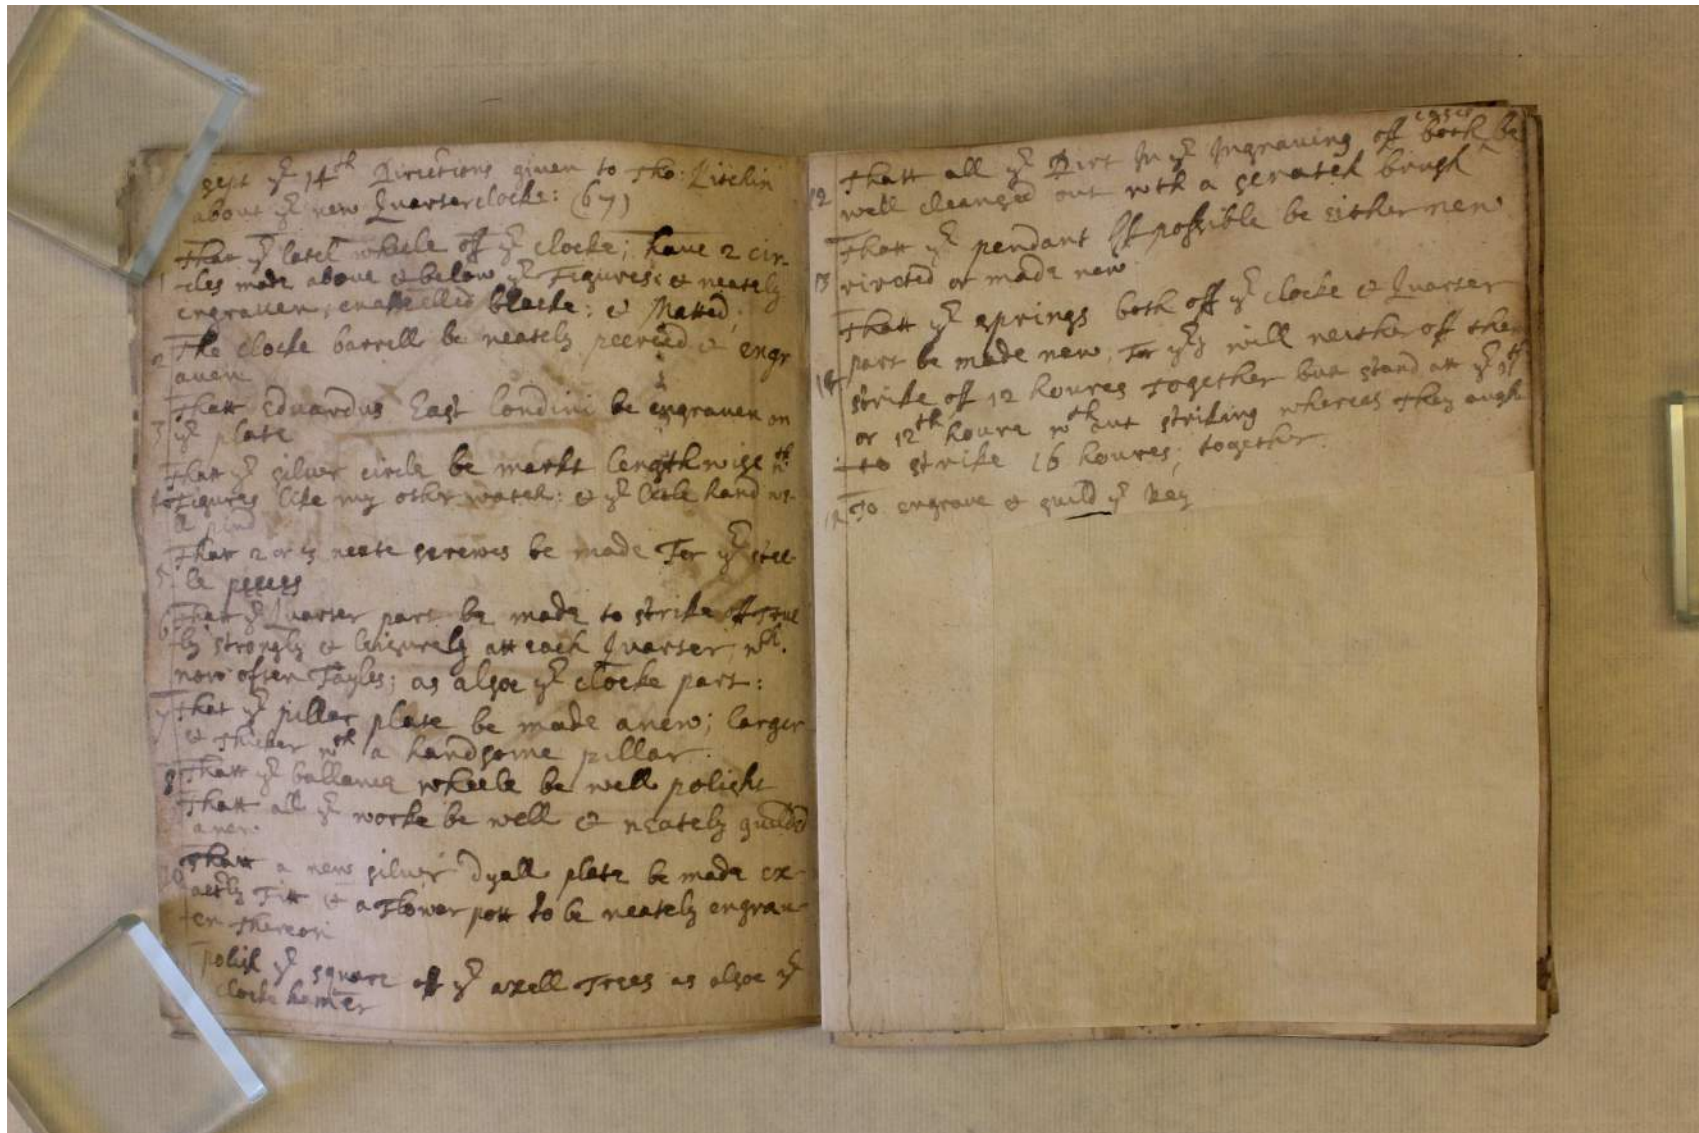 Sept yͤ 14th Directions given to Tho: Litchin
about yͤ new Quarterclocke: (67)
1 That yͤ latel wheele off yͤ clocke; have 2 cir-
-cles made above & below yͤ Figures; & neately
engraven, enamelled blacke; & Matted;
2 The clocke barrell be neately peerced & engr
aven
Thatt Eduardus East Londini be engraven on
3 yͤ plate
That yͤ silver circle be markt lengthwise wth
4 Figures like my other watch: & yͤ litle hand
That 2 or 3 neate screwes be made For yͤ stee-
5 le peeces
6 Thatt yͤ Quarter part be made to strike off true
ly strongly & leisurely att each Quarter; wch.
now often Fayles; as alsoe yͤ clocke part:
7 That yͤ pillar plate be made anew; larger
& thicker wth a handsome pillar.
8 Thatt yͤ ballance wheele be well polisht
Thatt all yͤ worke be well & neately guilded
anew.
Thatt a new silver dyall plate be made ex-
actly Fitt & a Flower pott to be neately engrav-
en thereon
Polish yͤ square off yͤ axell Trees as alsoe yͤ
clocke hamer
cases
Thatt all yͤ Dirt In yͤ Ingraving off both be
12 well cleansed out wth a scratch brush
Thatt yͤ pendant If possible be either new
13 riveted or made new
Thatt yͤ springs both off yͤ clocke & Quarter
part be made new; For yͤy will neither off them
14 strike off 12 houres Together but stand att yͤ 9th
or 12th houre wthout striking whereas they ought
to strike 16 houres; together.
To engrave & guild yͤ key